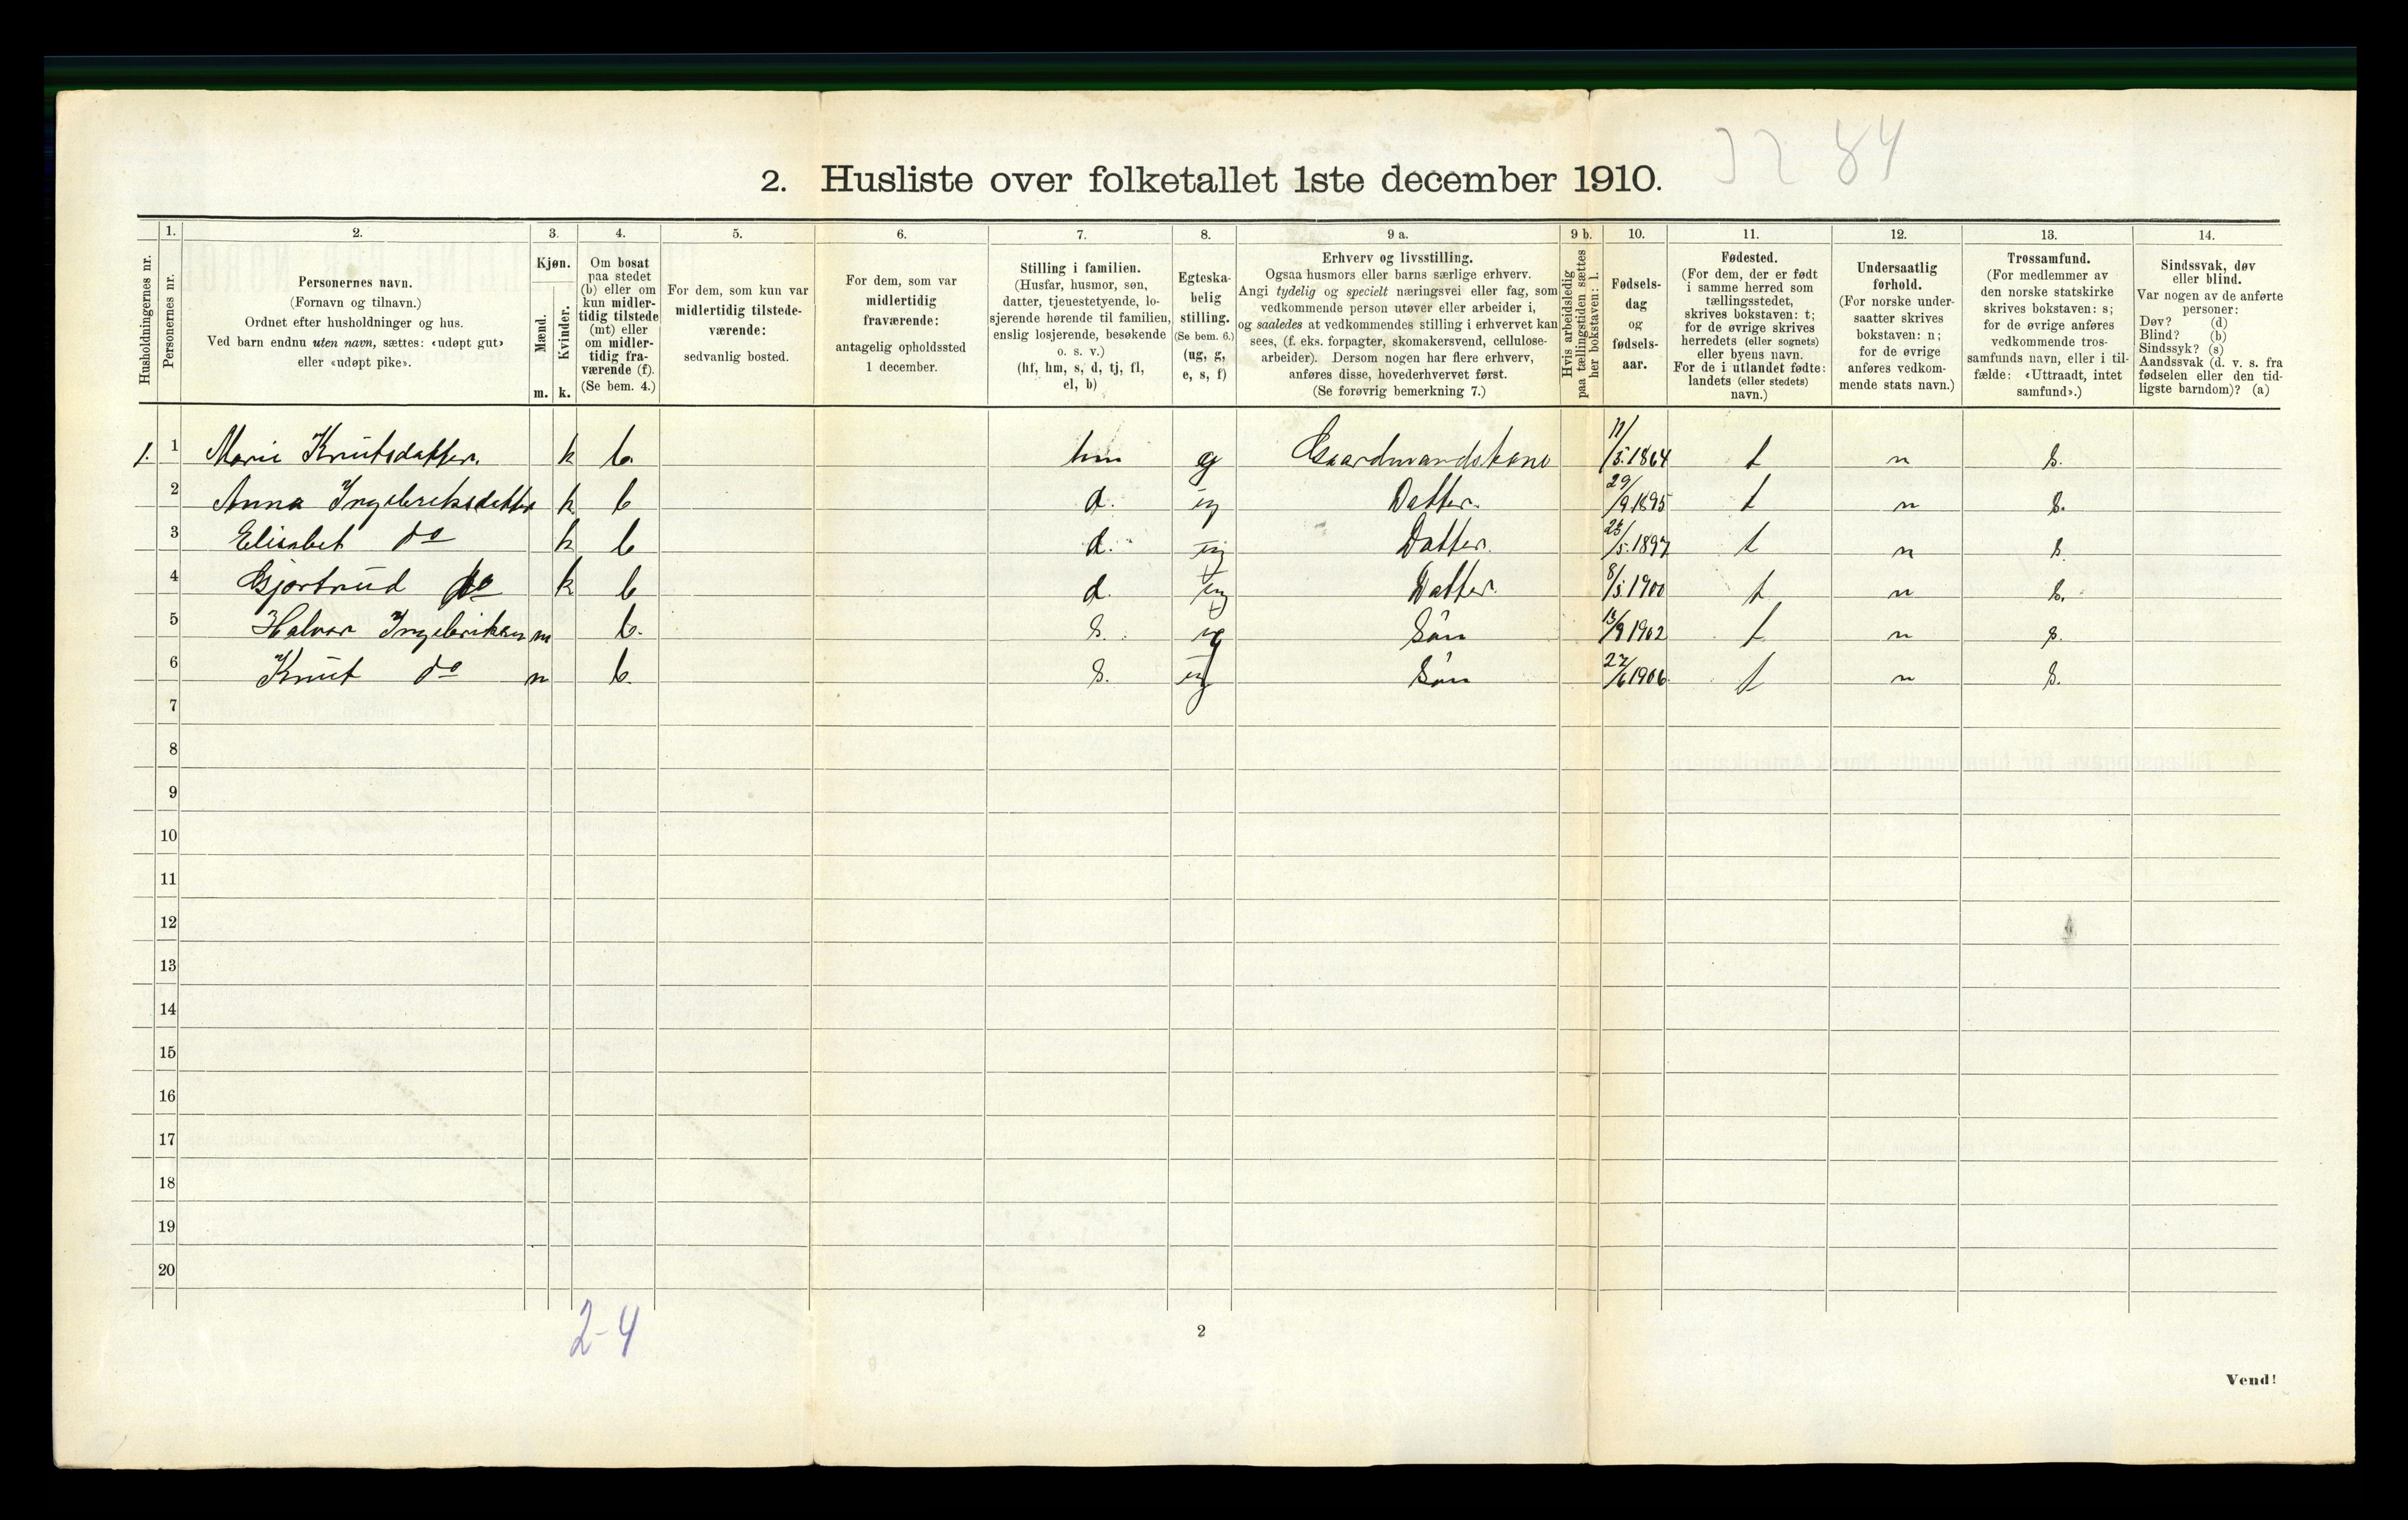 32 84
2. Husliste over folketallet 1ste december 1910.
Husholdningernes nr.
1.
Personernes nr.
2.
Personernes navn.
(Fornavn og tilnavn.)
Ordnet efter husholdninger og hus.
Ved barn endnu uten navn, sættes: «udøpt gut»
eller «udøpt pike».
3.
Kjøn.
Mænd.
Kvinder.
m. k.
4.
Om bosat
paa stedet
(b) eller om
kun midler-
tidig tilstede
(mt) eller
om midler-
tidig fra-
værende (f).
(Se bem. 4.)
5.
For dem, som kun var
midlertidig tilstede-
værende:
sedvanlig bosted.
6.
For dem, som var
midlertidig
fraværende:
antagelig opholdssted
1 december.
7.
Stilling i familien.
(Husfar, husmor, søn,
datter, tjenestetyende, lo-
sjerende hørende til familien,
enslig losjerende, besøkende
o. s. v.)
(hf, hm, s, d, tj, fl,
el, b)
8.
Egteska-
belig
stilling.
(Se bem. 6.)
(ug, g,
e, s, f)
9 a.
Erhverv og livsstilling.
Ogsaa husmors eller barns særlige erhverv.
Angi tydelig og specielt næringsvei eller fag, som
vedkommende person utøver eller arbeider i,
og saaledes at vedkommendes stilling i erhvervet kan
sees, (f. eks. forpagter, skomakersvend, cellulose-
arbeider). Dersom nogen har flere erhverv,
anføres disse, hovederhvervet først.
(Se forøvrig bemerkning 7.)
9 b.
Hvis arbeidsledig
paa tællingstiden sættes
her bokstaven: l.
10.
Fødsels-
dag
og
fødsels-
aar.
11.
Fødested.
(For dem, der er født
i samme herred som
tællingsstedet,
skrives bokstaven: t;
for de øvrige skrives
herredets (eller sognets)
eller byens navn.
For de i utlandet fødte:
landets (eller stedets)
navn.)
12.
Undersaatlig
forhold.
(For norske under-
saatter skrives
bokstaven: n;
for de øvrige
anføres vedkom-
mende stats navn.)
13.
Trossamfund.
(For medlemmer av
den norske statskirke
skrives bokstaven: s;
for de øvrige anføres
vedkommende tros-
samfunds navn, eller i til-
fælde: «Uttraadt, intet
samfund».)
14.
Sindssvak, døv
eller blind.
Var nogen av de anførte
personer:
Døv? (d)
Blind? (b)
Sindssyk? (s)
Aandssvak (d. v. s. fra
fødselen eller den tid-
ligste barndom)? (a)
1. 1 Marie Knutsdatter. k b. hm g Gaardmandskone 11/5.1864 t n s.
2 Anna Ingebriktsdatter k b d. ug Datter. 29/9.1895 t n s.
3 Elisabet do k b d. ug Datter. /5.1897 t n s.
4 Gjertrud do k b d. ug Datter. 8/5.1900 t n s.
5 Halvor Ingebriktsen m b. s. ug Sön 13/9 1902 t n s.
6 Knut do m b. s. ug Sön 27/6 1906. t n s.
7
8
9
10
11
12
13
14
15
16
17
18
19
20
2-4
2
Vend!